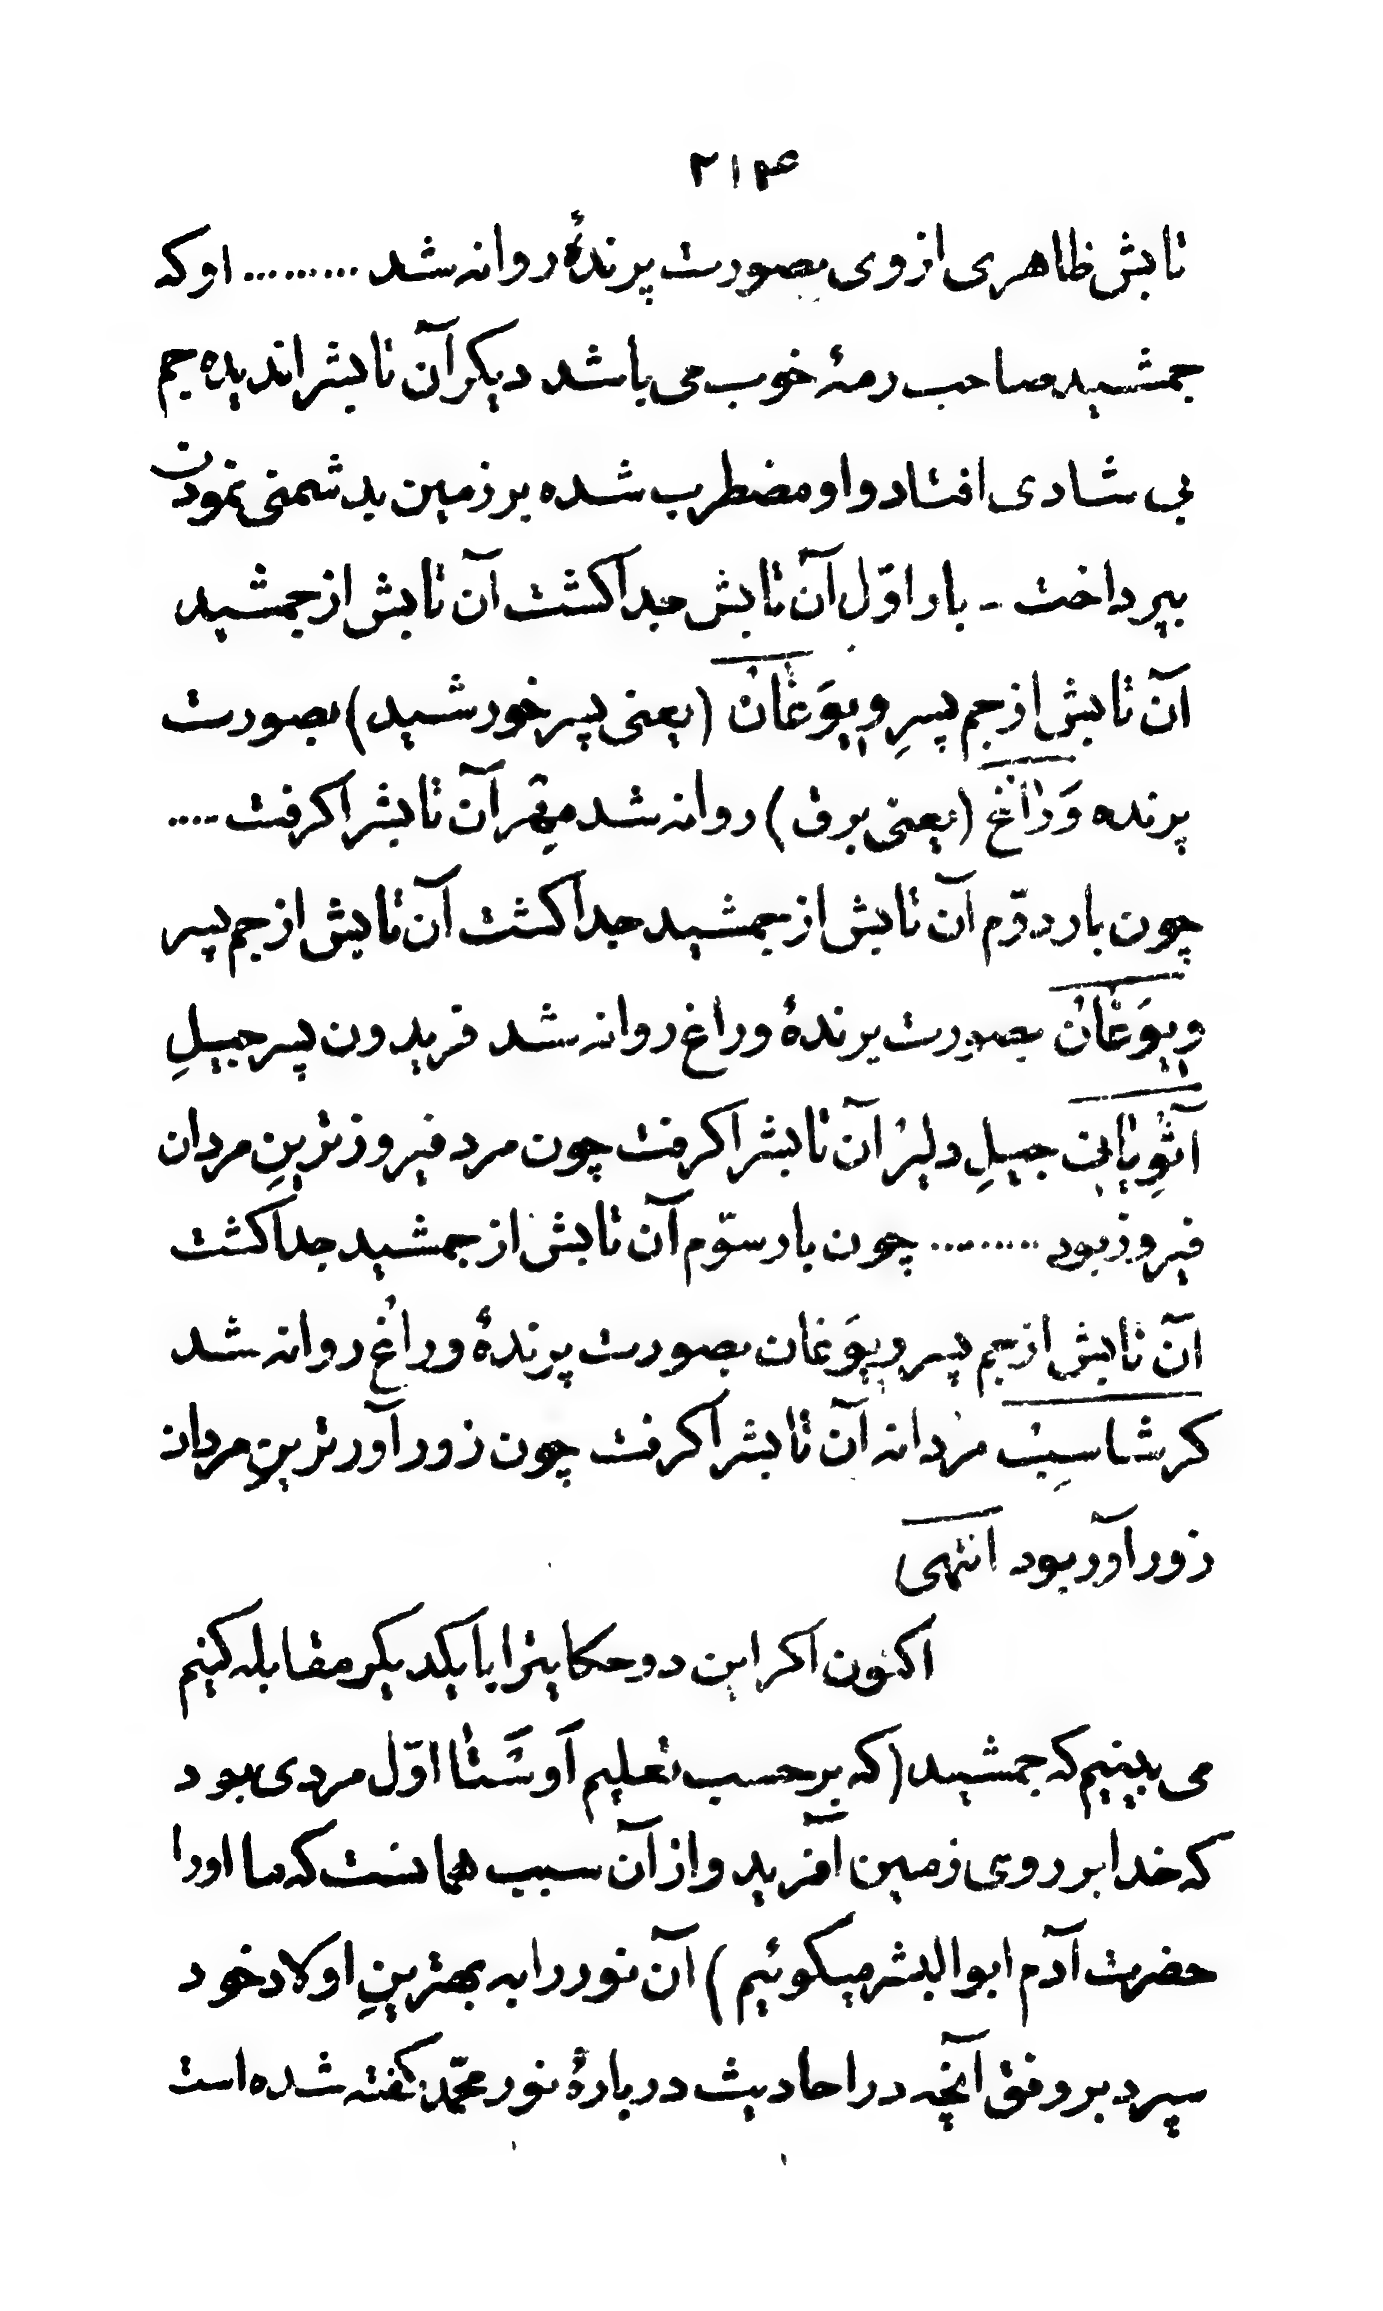 ۲۱۴
تابش ظاهری از وی بصورت پرندهٔ روانه شد ......... او که
جمشید صاحب رمهٔ خوب می باشد دیکر آن تابشرا ندیده جم
بی شادی افتاد و او مضطرب شده بر زمین بدشمنی نمودن
بپرداخت - بار اوّل آن تابش جدا کشت آن تابش از جمشید
آن تابش از جم پسرِ ویوَغانْ (یعنی پسر خورشید) بصورت
پرنده وَراغَ (یعنی برق) روانه شد مِهْر آن تابشرا کرفت ....
چون بار دوّم آن تابش از جمشید جدا کشت آن تابش از جم پسر
ویوَغان بصورت پرندهٔ وراغ روانه شد فریدون پسر جبیلِ
آثْوِیانی جبیلِ دلیر آن تابشرا کرفت چون مرد فیروزترینِ مردان
فیروز بود ......... چون بار سوّم آن تابش از جمشید جدا کشت
آن تابش از جم پسر ویوَغان بصورت پرندهٔ وراغ روانه شد
کرشاسپ مردانه آن تابشرا کرفت چون زورآورترینِ مردان
زورآور بود انتهی
اکنون اکر این دو حکایترا با یکدیکر مقابله کنیم
می بینیم که جمشید (که بر حسب تعلیم آوِسْتا اوّل مردی بود
که خدا بر روی زمین آفرید و از آن سبب همانست که ما اورا
حضرت آدم ابو البشر میکوئیم) آن نور را به بهترینِ اولاد خود
سپرد بر وفق آنچه در احادیث دربارهٔ نور محمّد کفته شده است